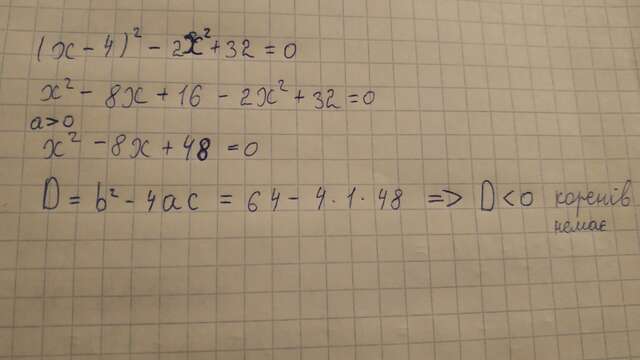 (x - 4)² - 2x² + 32 = 0
x² - 8x + 16 - 2x² + 32 = 0
a > 0
x² - 8x + 48 = 0
D = b² - 4ac = 64 - 4 · 1 · 48 => D < 0 коренів
немає